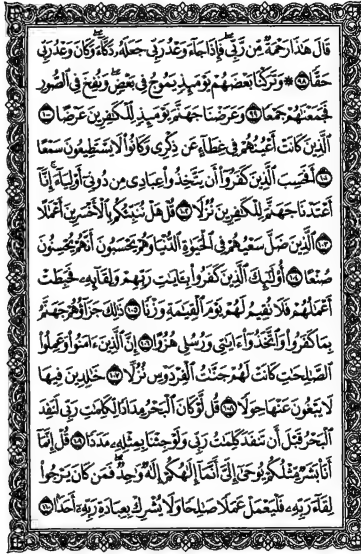 قَالَ هَٰذَا رَحْمَةٌ مِّن رَّبِّي فَإِذَا جَاءَ وَعْدُ رَبِّي جَعَلَهُ دَكَّاءَ وَكَانَ وَعْدُ رَبِّي
حَقًّا ٩٨ ۞ وَتَرَكْنَا بَعْضَهُمْ يَوْمَئِذٍ يَمُوجُ فِي بَعْضٍ وَنُفِخَ فِي الصُّورِ
فَجَمَعْنَاهُمْ جَمْعًا ٩٩ وَعَرَضْنَا جَهَنَّمَ يَوْمَئِذٍ لِّلْكَافِرِينَ عَرْضًا ١٠٠
الَّذِينَ كَانَتْ أَعْيُنُهُمْ فِي غِطَاءٍ عَن ذِكْرِي وَكَانُوا لَا يَسْتَطِيعُونَ سَمْعًا
١٠١ أَفَحَسِبَ الَّذِينَ كَفَرُوا أَن يَتَّخِذُوا عِبَادِي مِن دُونِي أَوْلِيَاءَ إِنَّا
أَعْتَدْنَا جَهَنَّمَ لِلْكَافِرِينَ نُزُلًا ١٠٢ قُلْ هَلْ نُنَبِّئُكُم بِالْأَخْسَرِينَ أَعْمَالًا
١٠٣ الَّذِينَ ضَلَّ سَعْيُهُمْ فِي الْحَيَاةِ الدُّنْيَا وَهُمْ يَحْسَبُونَ أَنَّهُمْ يُحْسِنُونَ
صُنْعًا ١٠٤ أُولَٰئِكَ الَّذِينَ كَفَرُوا بِآيَاتِ رَبِّهِمْ وَلِقَائِهِ فَحَبِطَتْ
أَعْمَالُهُمْ فَلَا نُقِيمُ لَهُمْ يَوْمَ الْقِيَامَةِ وَزْنًا ١٠٥ ذَٰلِكَ جَزَاؤُهُمْ جَهَنَّمُ
بِمَا كَفَرُوا وَاتَّخَذُوا آيَاتِي وَرُسُلِي هُزُوًا ١٠٦ إِنَّ الَّذِينَ آمَنُوا وَعَمِلُوا
الصَّالِحَاتِ كَانَتْ لَهُمْ جَنَّاتُ الْفِرْدَوْسِ نُزُلًا ١٠٧ خَالِدِينَ فِيهَا
لَا يَبْغُونَ عَنْهَا حِوَلًا ١٠٨ قُل لَّوْ كَانَ الْبَحْرُ مِدَادًا لِّكَلِمَاتِ رَبِّي لَنَفِدَ
الْبَحْرُ قَبْلَ أَن تَنفَدَ كَلِمَاتُ رَبِّي وَلَوْ جِئْنَا بِمِثْلِهِ مَدَدًا ١٠٩ قُلْ إِنَّمَا
أَنَا بَشَرٌ مِّثْلُكُمْ يُوحَىٰ إِلَيَّ أَنَّمَا إِلَٰهُكُمْ إِلَٰهٌ وَاحِدٌ فَمَن كَانَ يَرْجُوا
لِقَاءَ رَبِّهِ فَلْيَعْمَلْ عَمَلًا صَالِحًا وَلَا يُشْرِكْ بِعِبَادَةِ رَبِّهِ أَحَدًا ١١٠